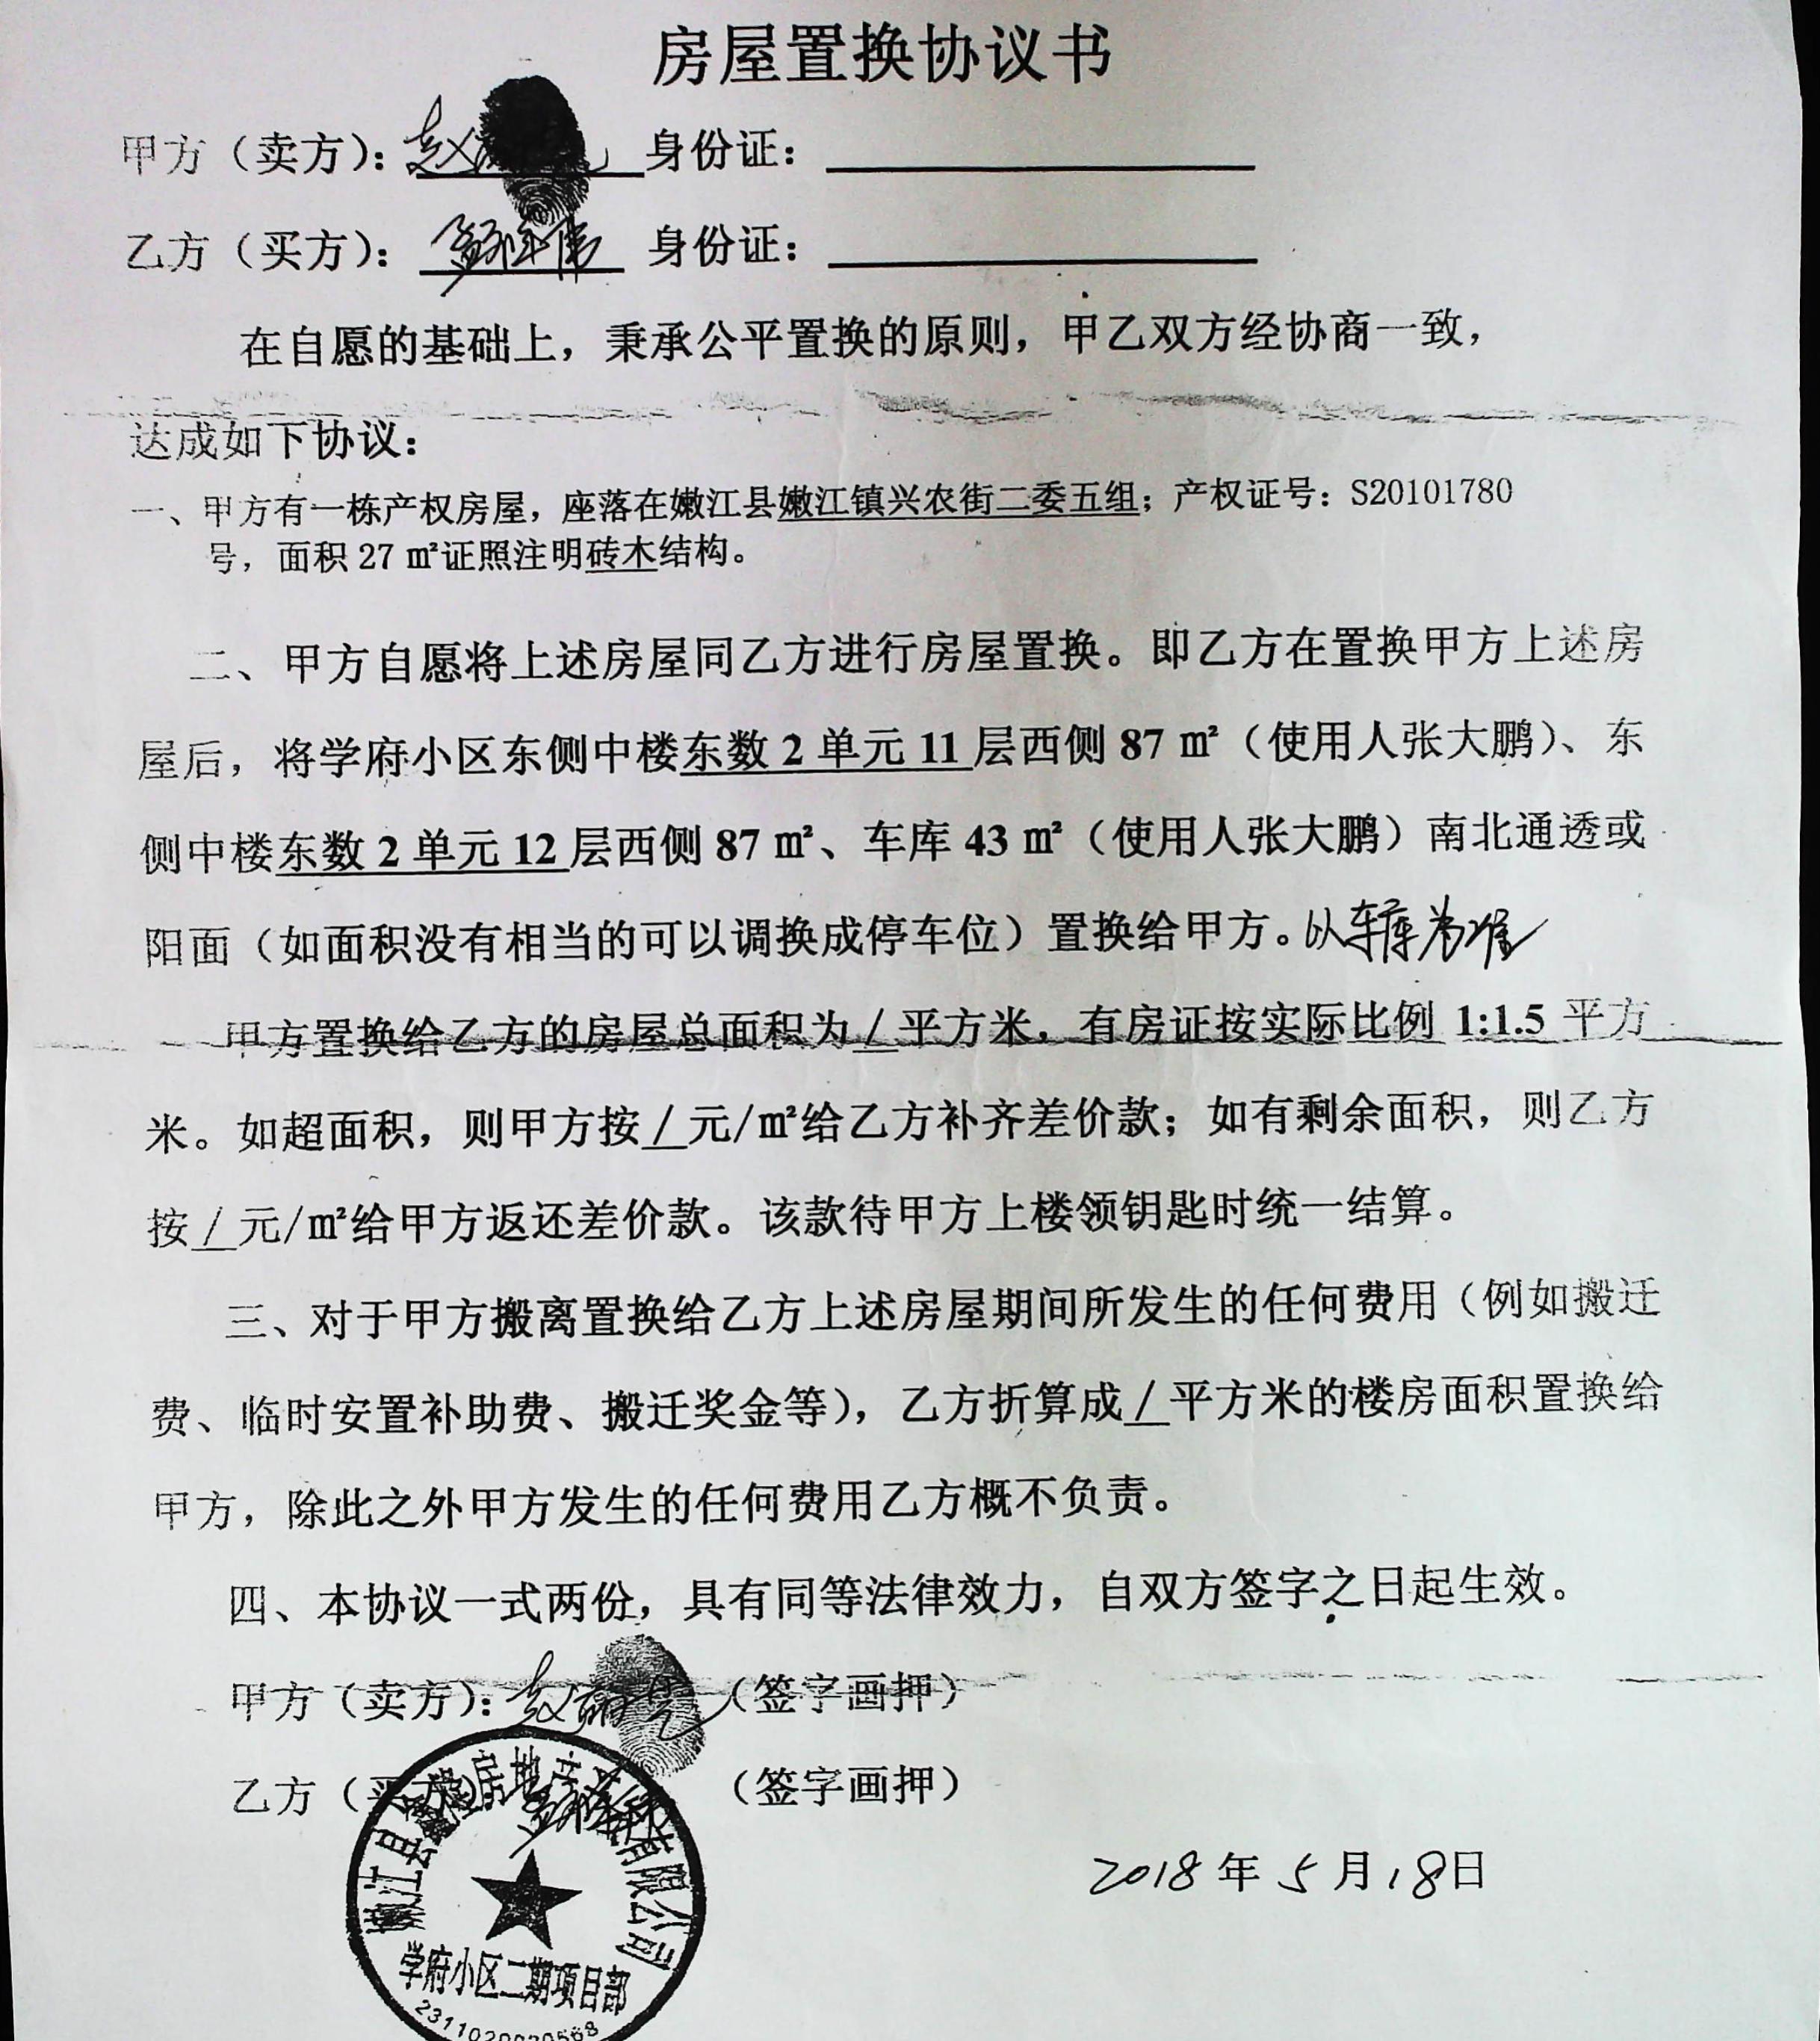 房屋置换协议书
甲方（卖方）：赵 身份证：
乙方（买方）： 身份证：
在自愿的基础上，秉承公平置换的原则，甲乙双方经协商一致，
达成如下协议：
一、甲方有一栋产权房屋，座落在嫩江县嫩江镇兴农街二委五组；产权证号：S20101780
号，面积 27 ㎡证照注明砖木结构。
二、甲方自愿将上述房屋同乙方进行房屋置换。即乙方在置换甲方上述房
屋后，将学府小区东侧中楼东数 2 单元 11 层西侧 87 ㎡（使用人张大鹏）、东
侧中楼东数 2 单元 12 层西侧 87 ㎡、车库 43 ㎡（使用人张大鹏）南北通透或
阳面（如面积没有相当的可以调换成停车位）置换给甲方。以车库为准
甲方置换给乙方的房屋总面积为/平方米，有房证按实际比例 1:1.5 平方
米。如超面积，则甲方按/元/㎡给乙方补齐差价款；如有剩余面积，则乙方
按/元/㎡给甲方返还差价款。该款待甲方上楼领钥匙时统一结算。
三、对于甲方搬离置换给乙方上述房屋期间所发生的任何费用（例如搬迁
费、临时安置补助费、搬迁奖金等），乙方折算成/平方米的楼房面积置换给
甲方，除此之外甲方发生的任何费用乙方概不负责。
四、本协议一式两份，具有同等法律效力，自双方签字之日起生效。
甲方（卖方）：赵 （签字画押）
乙方（买方） （签字画押）
2018 年 5 月 18 日
嫩江县 房地产 有限公司
学府小区二期项目部